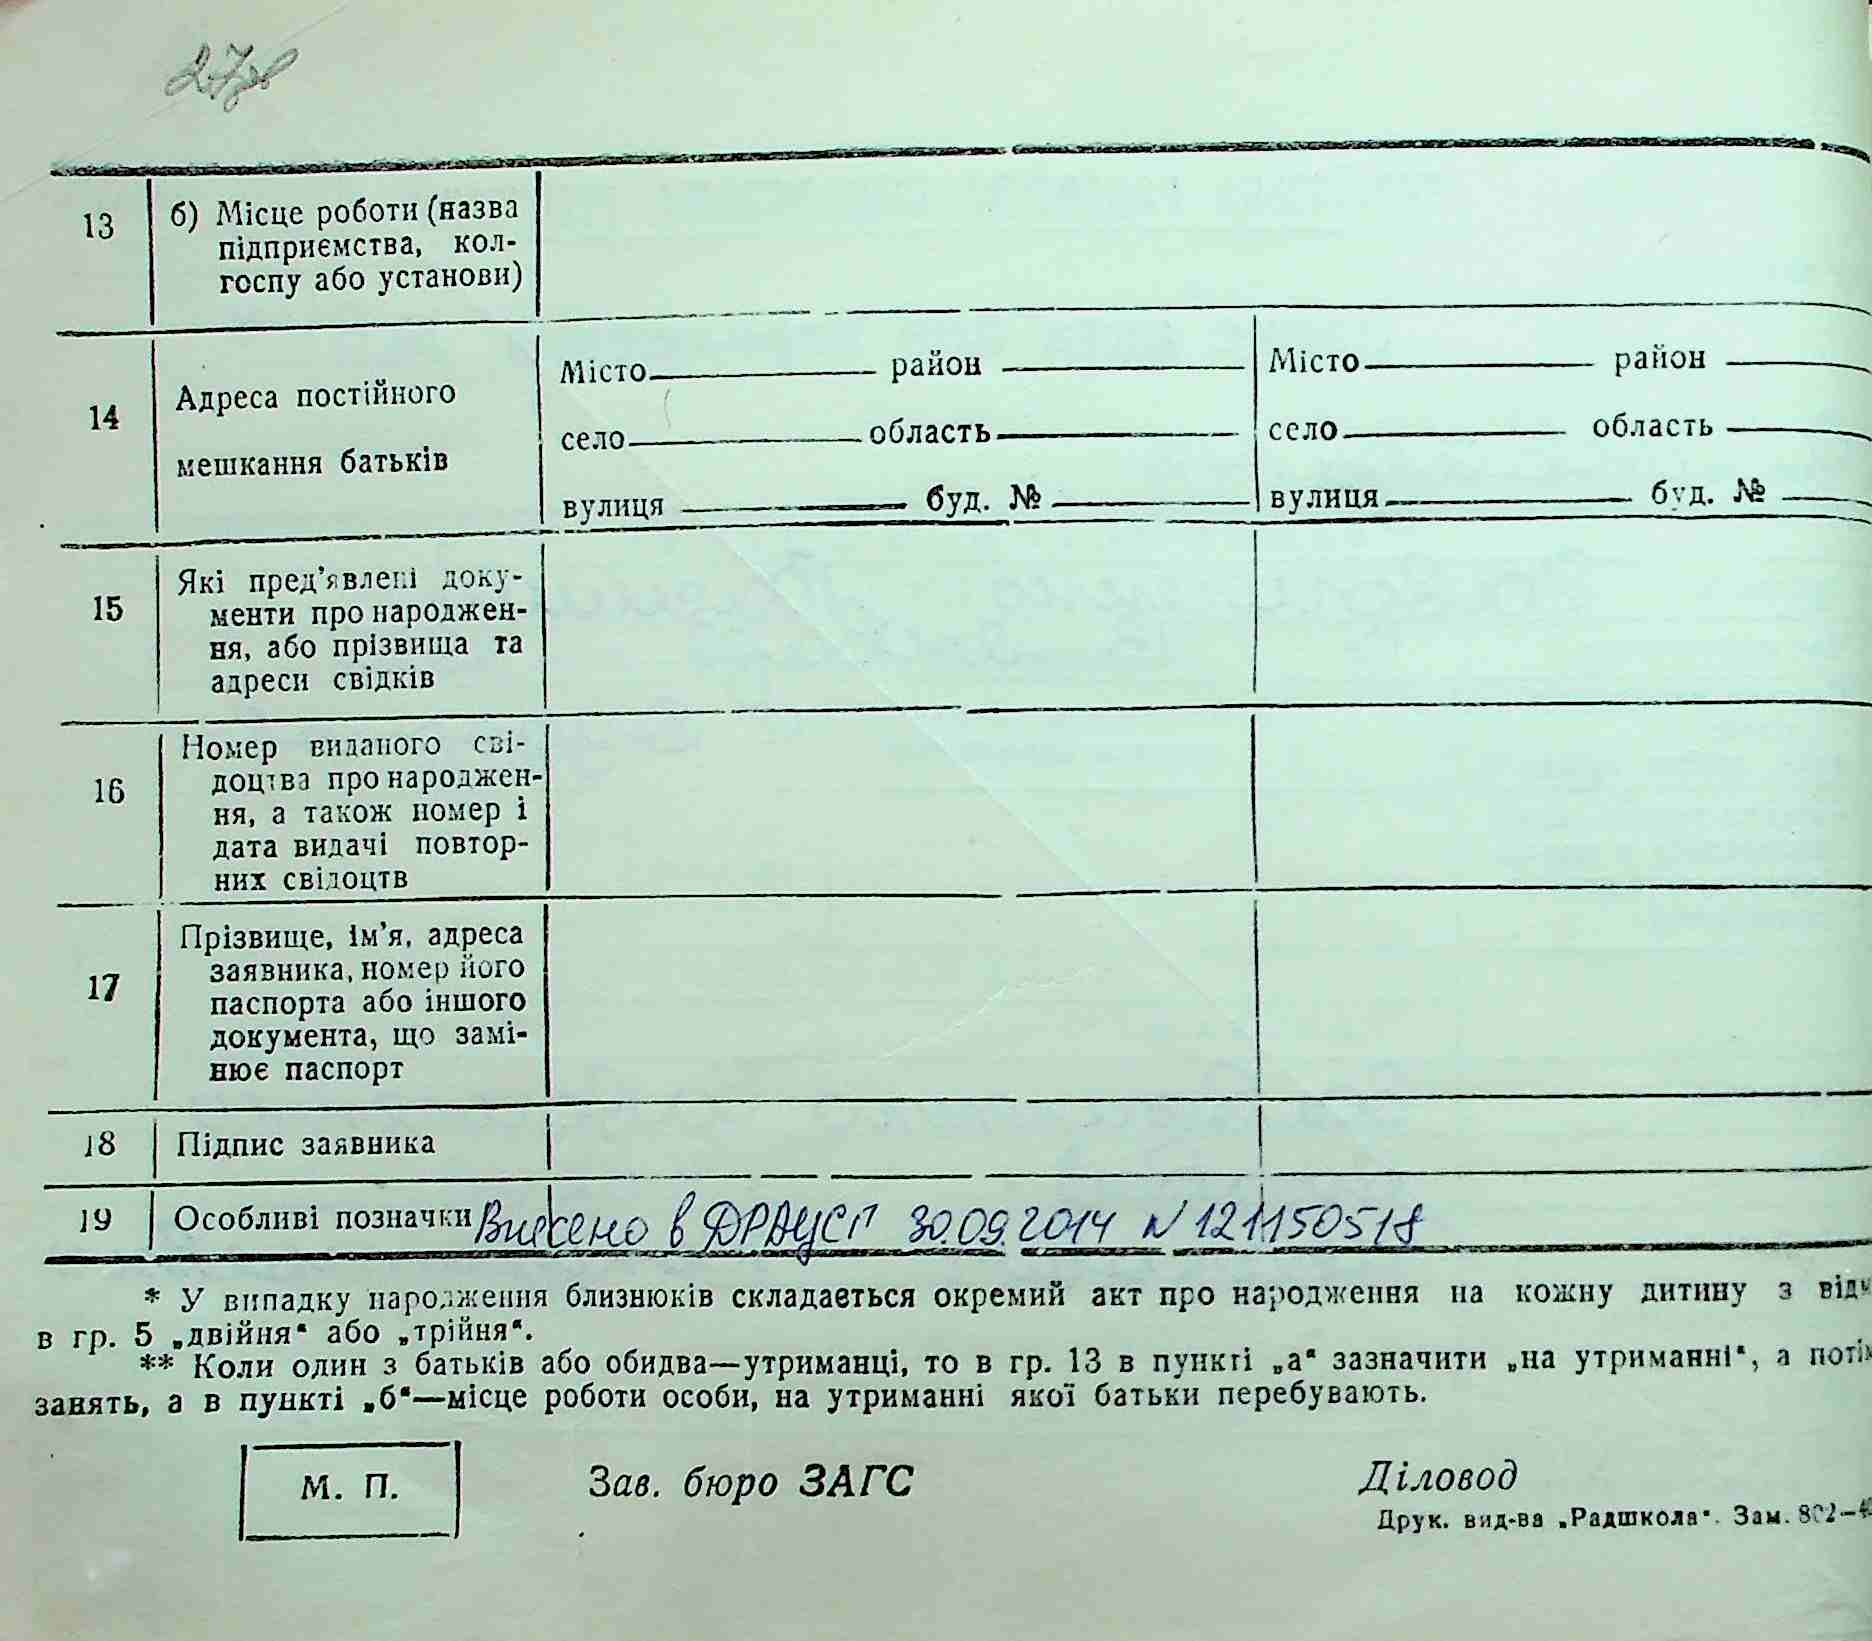 13 б) Місце роботи (назва
підприємства, кол-
госпу або установи)
14 Адреса постійного
мешкання батьків
Місто район
село область
вулиця буд. №
Місто район
село область
вулиця буд. №
15 Які пред’явлені доку-
менти про народжен-
ня, або прізвища та
адреси свідків
16 Номер виданого сві-
доцтва про народжен-
ня, а також номер і
дата видачі повтор-
них свідоцтв
17 Прізвище, ім’я, адреса
заявника, номер його
паспорта або іншого
документа, що замі-
нює паспорт
18 Підпис заявника
19 Особливі позначки Внесено в ДРАЦСГ 30.09.2014 N 121150518
* У випадку народження близнюків складається окремий акт про народження на кожну дитину з
в гр. 5 „двійня“ або „трійня“.
** Коли один з батьків або обидва—утриманці, то в гр. 13 в пункті „а“ зазначити „на утриманні“, а
занять, а в пункті „б“—місце роботи особи, на утриманні якої батьки перебувають.
М. П.
Зав. бюро ЗАГС
Діловод
Друк. вид-ва „Радшкола“. Зам. 802—